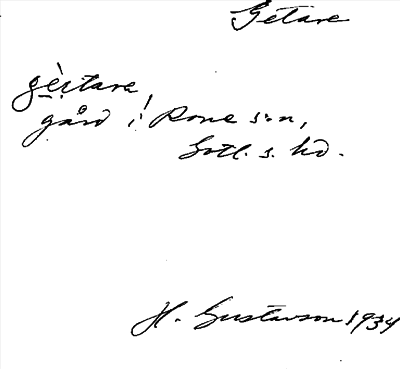 Getare
gè̱ṛtare
gård i Rone s:n,
Gotl. s. hd.
H. Gustavson 1934